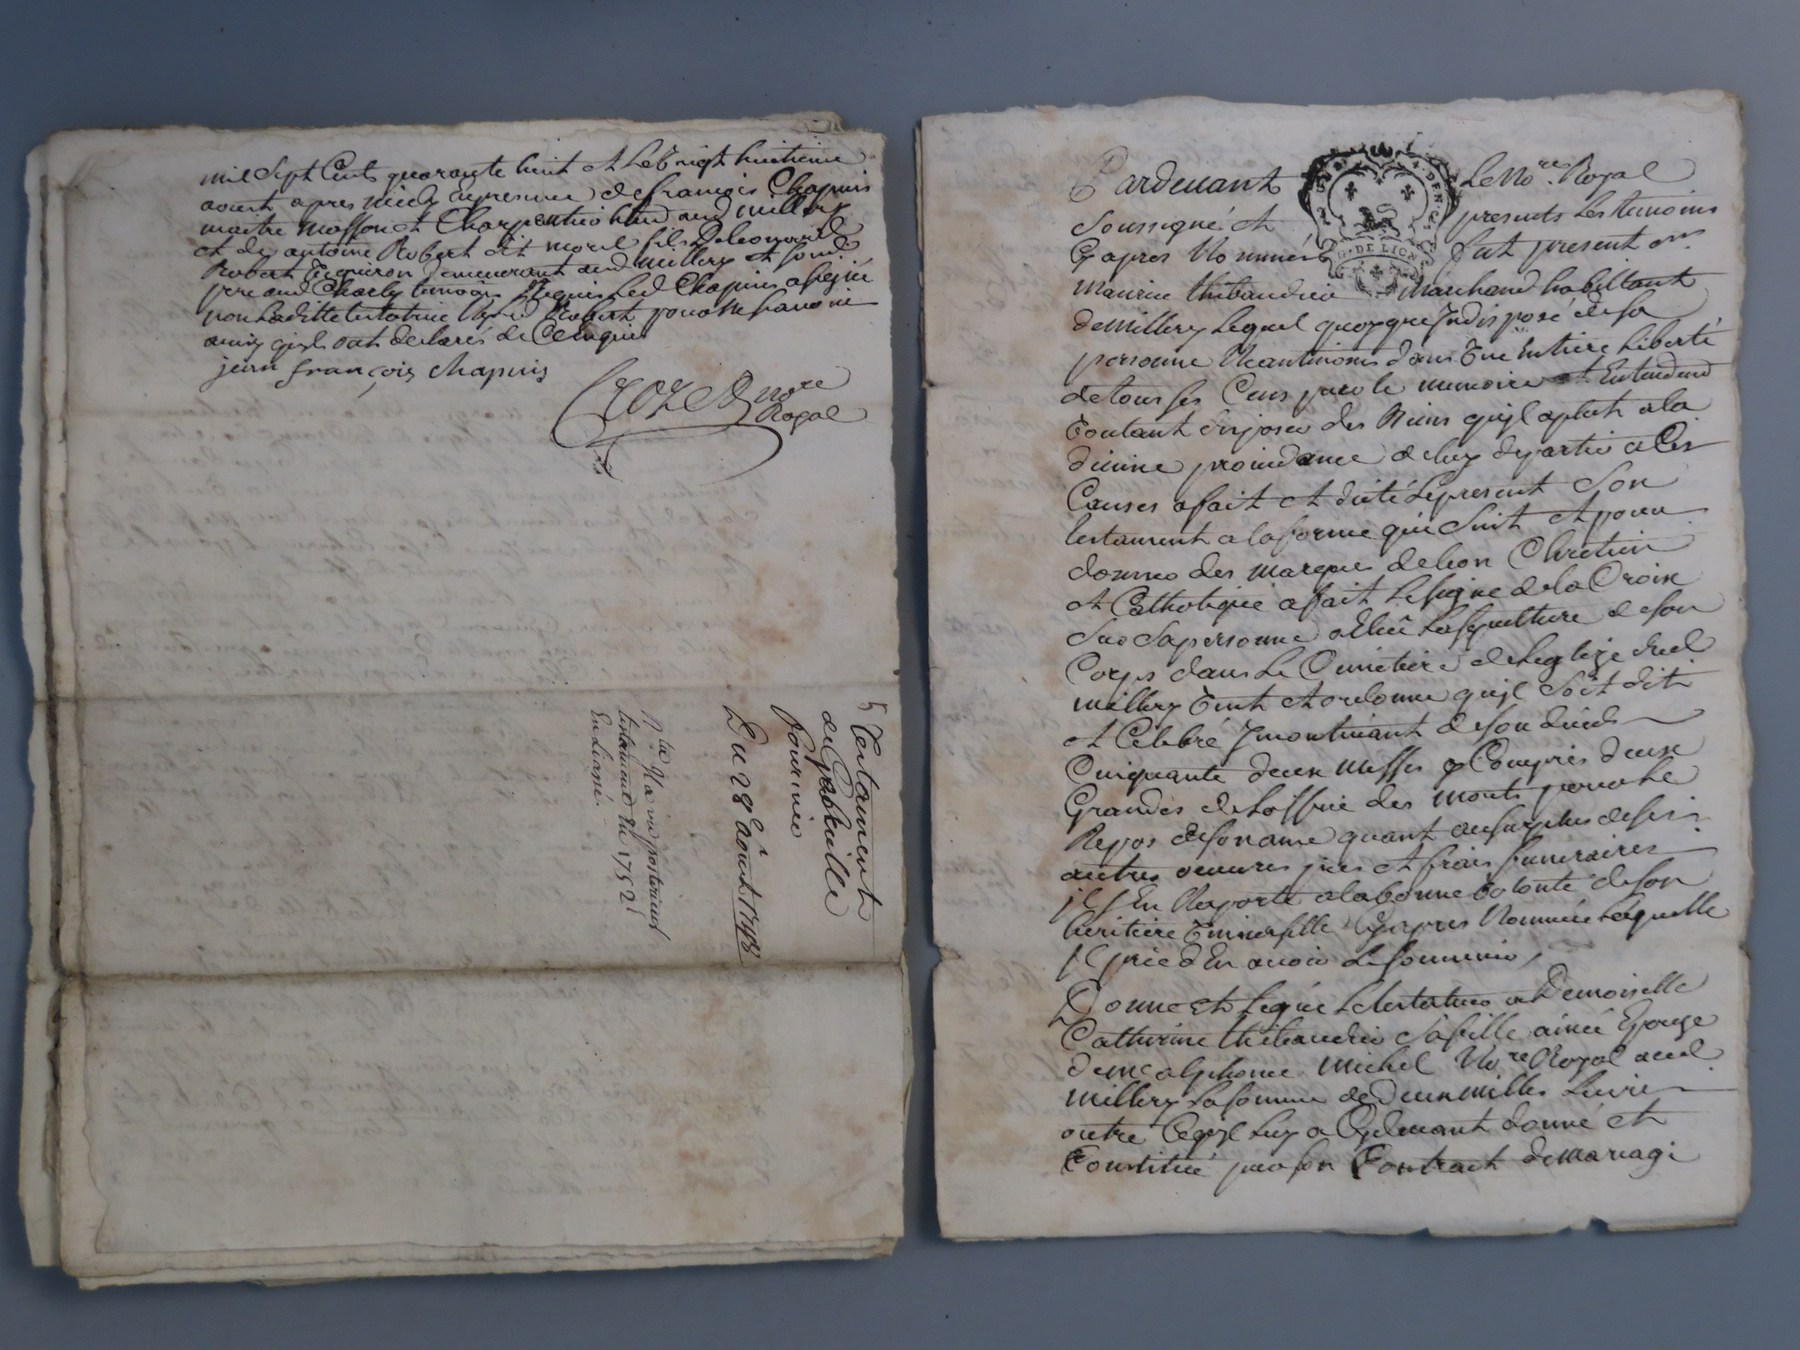 mil Sept Cents quarante huit et Le vingt huitieme
aoust apres midy En presence de françois Chapuis
maitre masson et Charpentier aud millery
et de antoine Robert dit morel fils de Leonnard
Robert Vigneron demeurant aud millery et sond
pere aud Charly temoins Requis Led Chapuis a signé
non Laditte testatrice ny Led Robert pour ne Savoir
ainsy quils ont declarés de Ce Enquis
jean françois chapuis
Crozet nore
Royal
5 Testament
de
Pourrier
Du 28e aoust 1748
Nta Il y a un posterieur
testament du 1752
En Liasse
Pardevant Le Nore. Royal
soussigné et presents Les temoins
Cy apres Nommés fut present sr
maurice thibaudier Marchand habittant
de millery Lequel quoyque Indisposé de sa
personne Neantmoins dans Une Entiere Liberté
de tous ses Cens parole memoire et Entendemt
Voulant disposer des Biens quil a plut a la
divine providance de luy departir a Ces
Causes a fait et dicté Le present Son
testament a la forme qui Suit et pour
donner des marques de bon Chretien
et Catholique a fait Le signe de la Croix
Sur Sa personne a Elûe La sepulture de son
Corps dans Le Cimetiere de Leglize dud
millery Veut et ordonne quil Soit dit
et Celebré Incontinant de son deces
Cinquante deux Messes y Compris deux
Grandes de Loffice des morts pour le
Repos de son ame quant au surplus de ses
autres oeuvres pies et frais funeraires
il s'En Raporte a la bonne Volonté de son
heritiere Universelle Cy apres Nommée Laquelle
il prie d'En avoir Le souvenir,
Donne et Legue Le testateur a Demoiselle
Catherine thibaudier Sa fille ainée Epouze
de Me alphonce Michel Nore Royal aud
millery La somme de Deux milles Livres
outre Ce quil Luy a Cy devant donné et
Constitué par son Contract de mariage